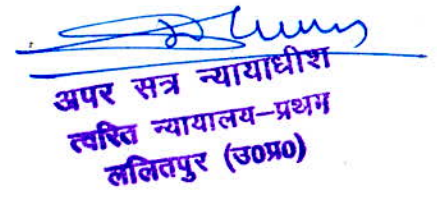 अपर सत्र न्यायाधीश
त्वरित न्यायालय-प्रथम
ललितपुर (उ0प्र0)